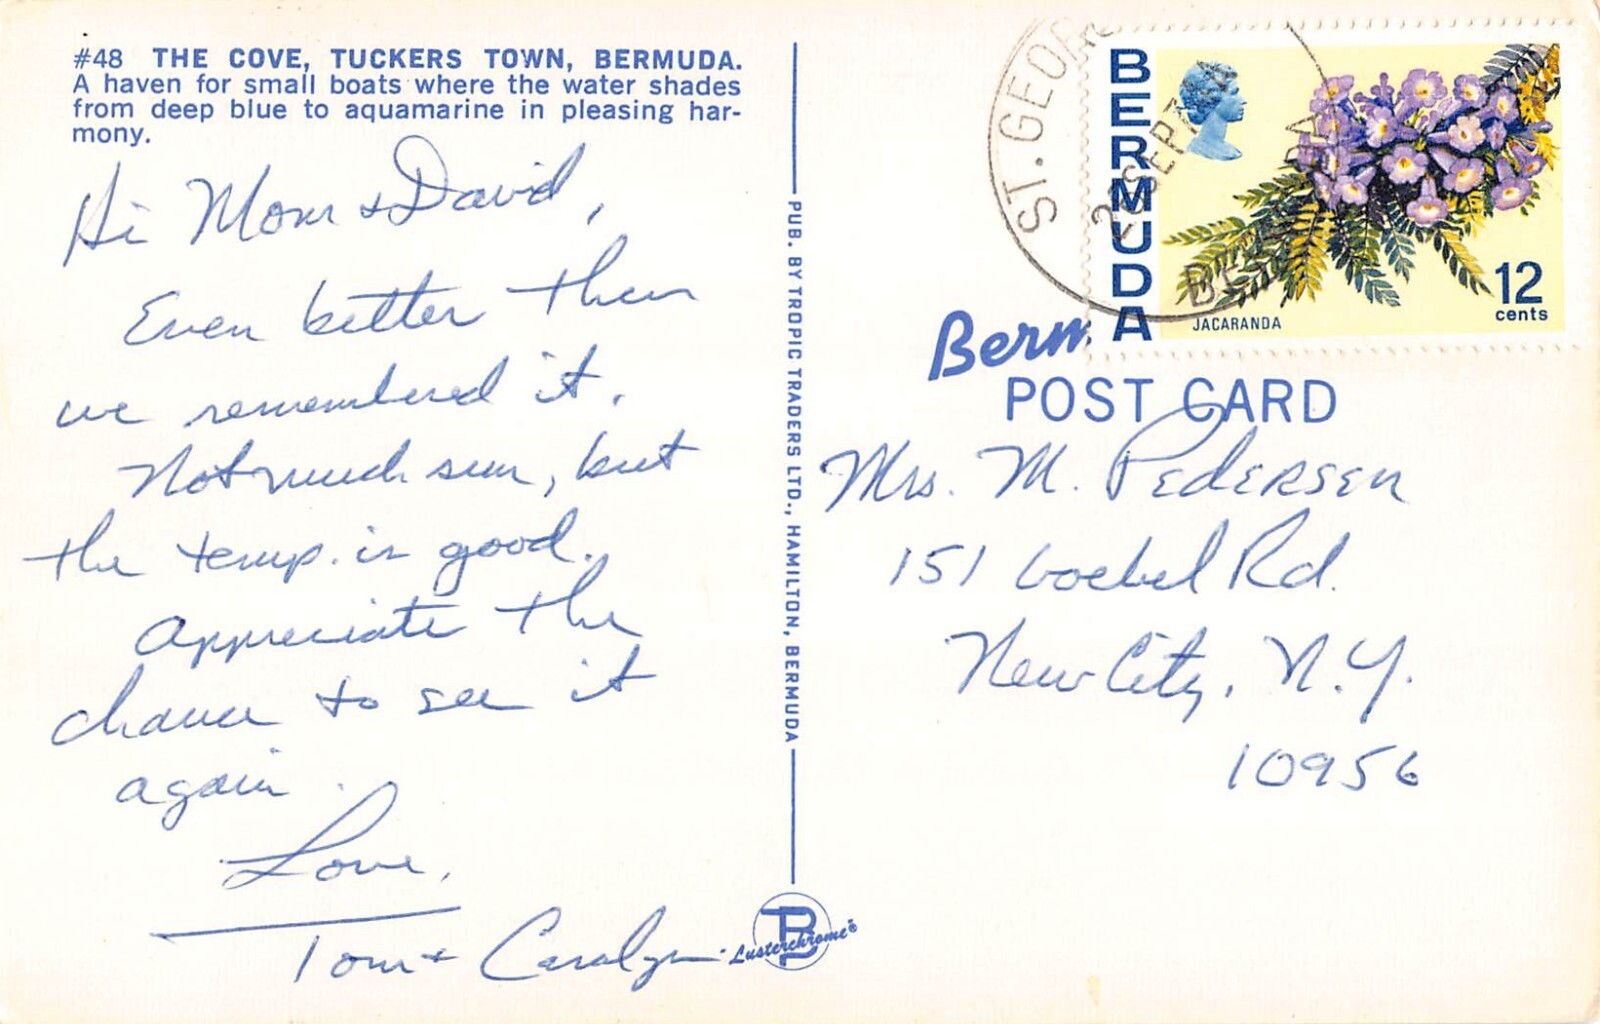 #48 THE COVE, TUCKERS TOWN, BERMUDA.
A haven for small boats where the water shades
from deep blue to aquamarine in pleasing har-
mony.
Hi Mom & David,
Even better then
we remembered it.
Not much sun, but
the temp. is good.
Appreciate the
chance to see it
again.
Love,
Tom & Caralyn
PUB. BY TROPIC TRADERS LTD., HAMILTON, BERMUDA
TB
Lusterchrome®
ST. GEOR
SEPT
BERMUDA
12
cents
JACARANDA
Berm
POST CARD
Mrs. M. PEDERSEN
151 Goebel Rd.
New City, N.Y.
10956